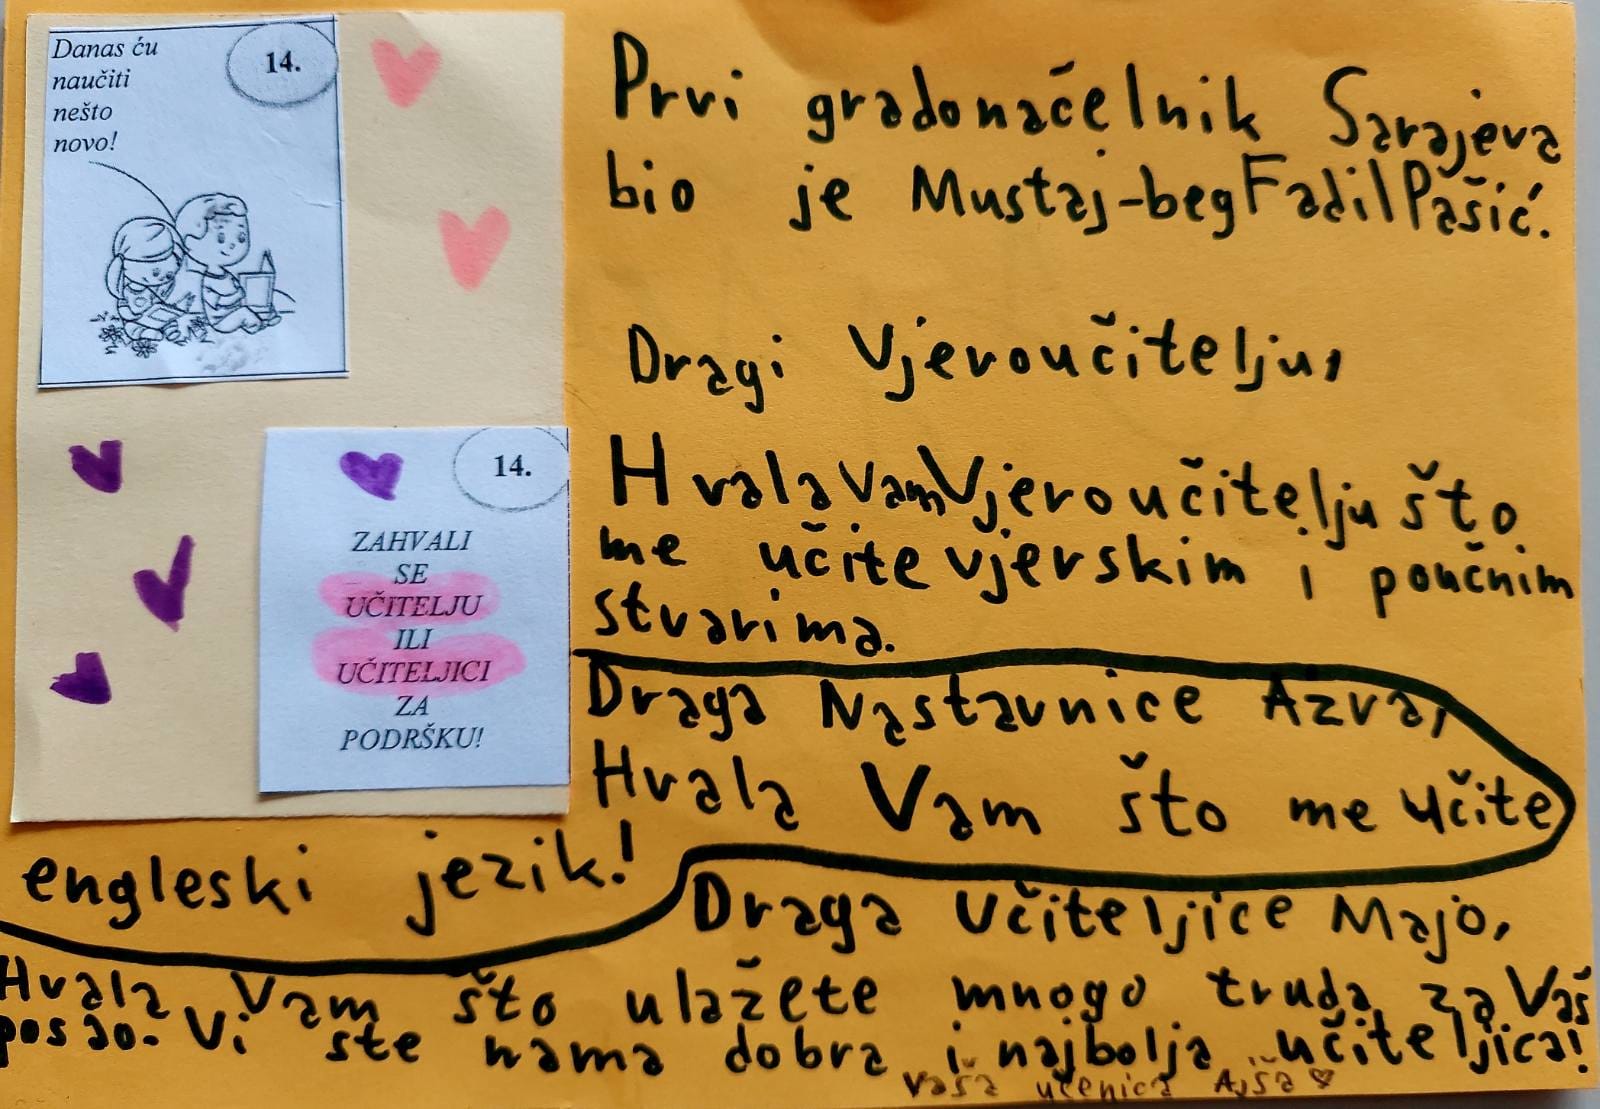 Danas ću
naučiti
nešto
novo!
14.
14.
ZAHVALI
SE
UČITELJU
ILI
UČITELJICI
ZA
PODRŠKU!
Prvi gradonačelnik Sarajeva
bio je Mustaj-beg FadilPašić.
Dragi Vjeroučitelju,
Hvala Vam Vjeroučitelju što
me učite vjerskim i poučnim
stvarima.
Draga Nastavnice Azra,
Hvala Vam što me učite
engleski jezik!
Draga Učiteljice Majo,
Hvala Vam što ulažete mnogo truda za Vaš
posao. Vi ste nama dobra i najbolja učiteljica!
Vaša učenica Ajša